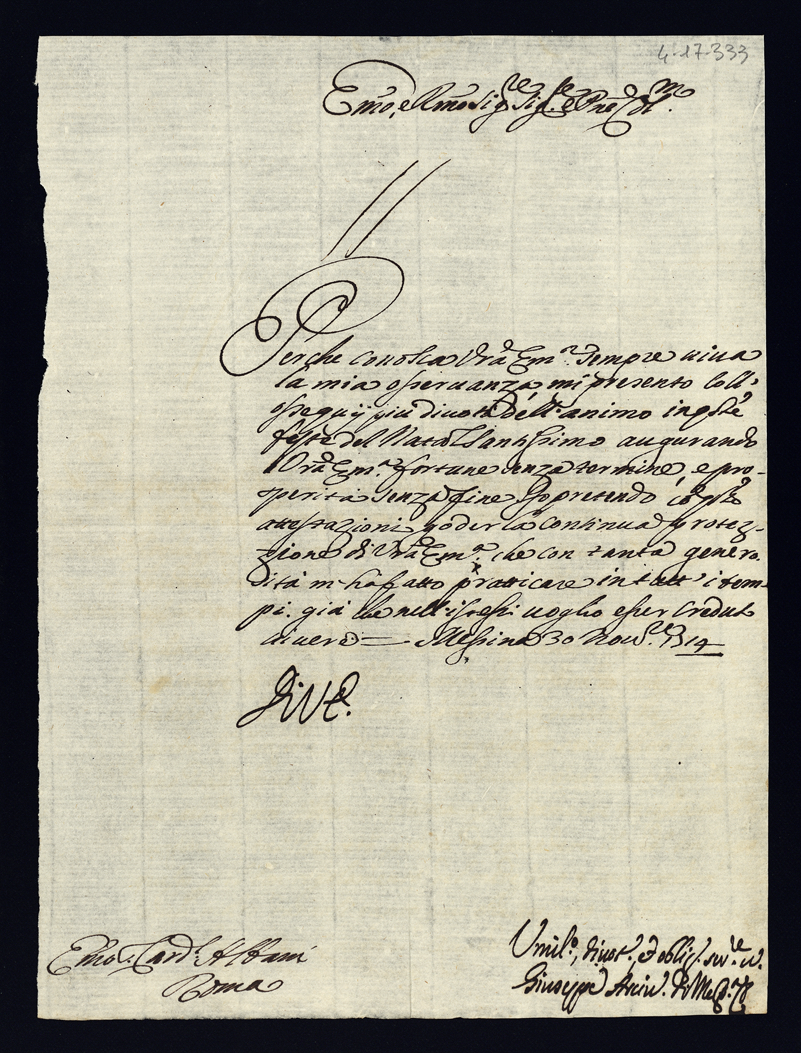 4-17-333
Emo, e Rmo Sig.re Sig.re e Pne Col.mo
Perche conosca Vrã Em.ª sempre uiua
la mia osseruanza, mi presento coll'
ossequij piu diuoti dell'animo in q.ste
feste del Natal Santissimo augurando
a Vrã Em.ª fortune senza termine, e pro-
sperità senza fine. Io pretendo con q.ste
attestazioni goder la continua protez-
zione di Vrã Em.ª che con tanta genero
sità m'há fatto pratticare in tutt'i tem-
pi. già che nell'istessi uoglio esser creduto
diuero = Messina 30 Nou.e 1714
Di V E.
Emo. Card.l Albani
Roma
Vmil.o, diuot.o, et oblig. ser.re u.
Giuseppe Arciu. di Mess.